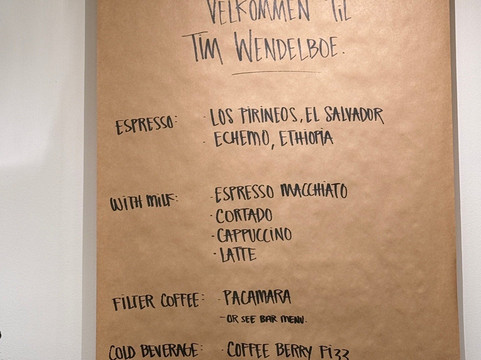 VELKOMMEN TIL
TIM WENDELBOE.
ESPRESSO: · LOS PIRINEOS, EL SALVADOR
· ECHEMO, ETHIOPIA
WITH MILK: · ESPRESSO MACCHIATO
· CORTADO
· CAPPUCCINO
· LATTE
FILTER COFFEE: · PACAMARA
- OR SEE BAR MENU.
COLD BEVERAGE: · COFFEE BERRY FIZZ